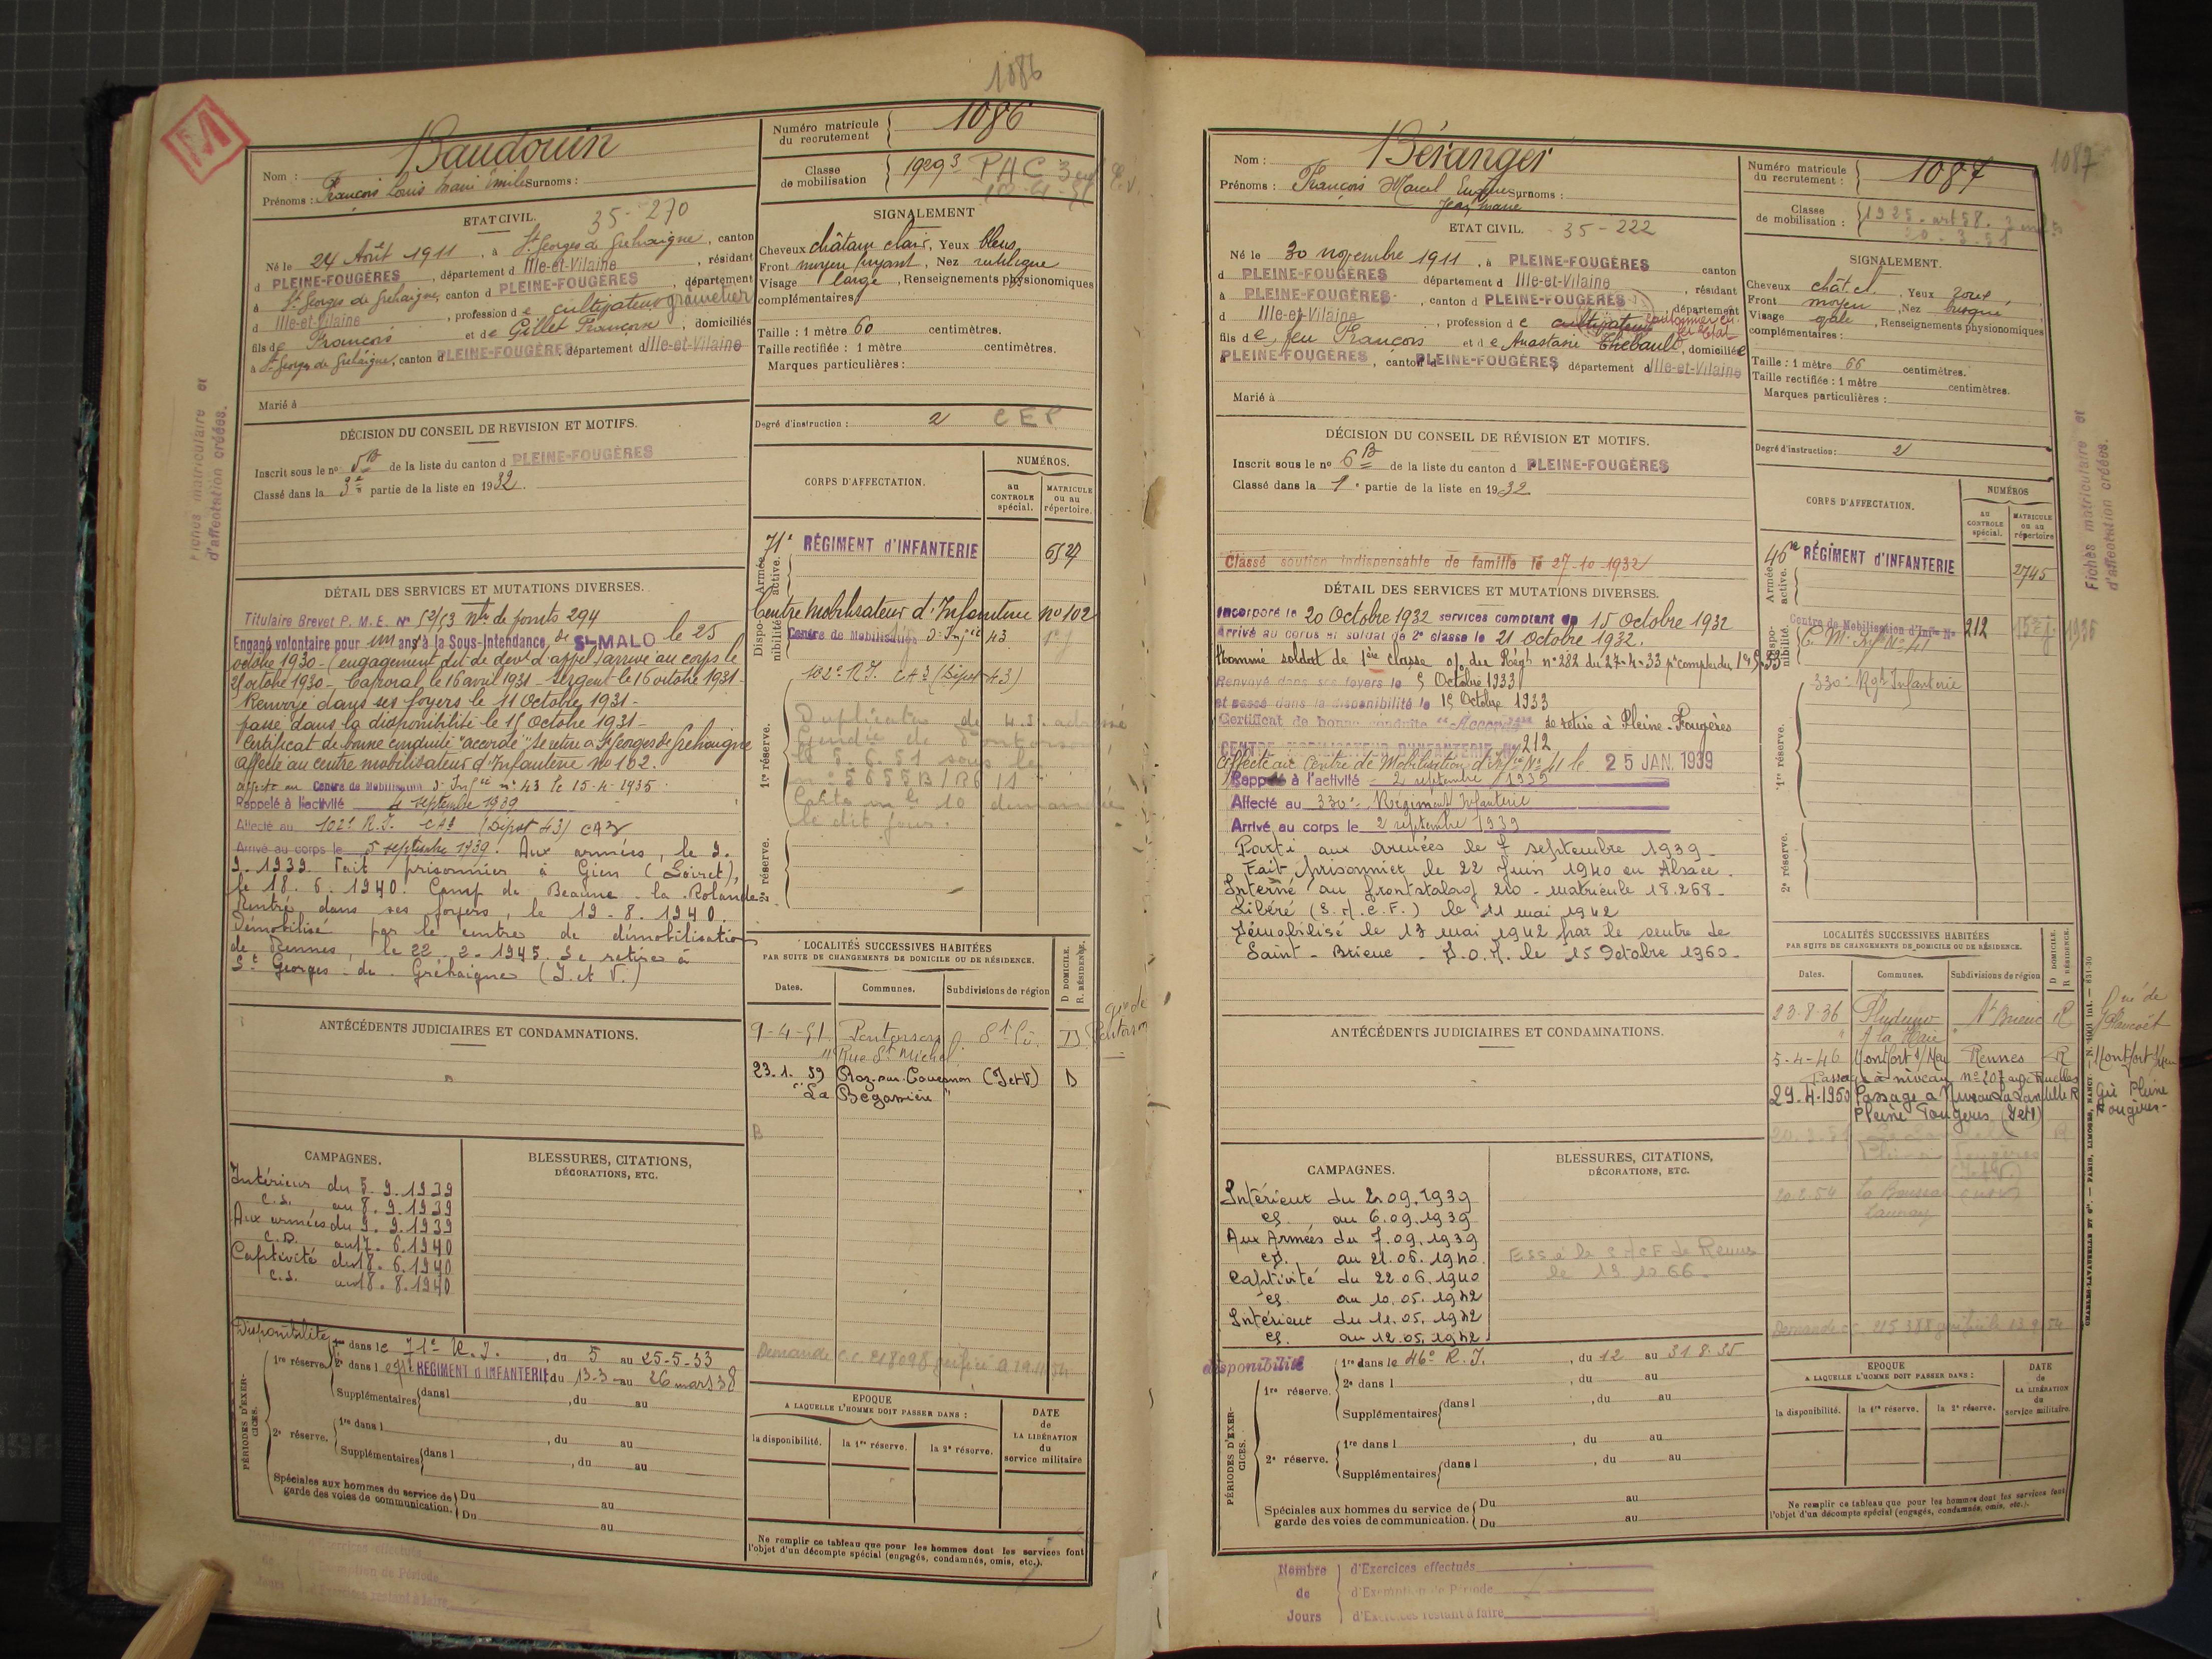 1086
M
Baudouin
Nom :
Prénoms : François Louis Marie Émile Surnoms :
Numéro matricule du recrutement 1086
Classe de mobilisation 1929 3 PAC 3
ETAT CIVIL. 35-270
Né le 24 Août 1911, à St Georges de Gréhaigne, canton
d PLEINE-FOUGÈRES, département d Ille-et-Vilaine, résidant
à St Georges de Gréhaigne, canton d PLEINE-FOUGÈRES, département
d Ille-et-Vilaine, profession de cultivateur grainetier
fils de François et de Gillet Françoise, domiciliés
à St Georges de Gréhaigne, canton d PLEINE-FOUGÈRES département d Ille-et-Vilaine
Marié à
SIGNALEMENT
Cheveux châtain clair, Yeux bleus
Front moyen fuyant, Nez rectiligne
Visage large, Renseignements physionomiques
complémentaires
Taille : 1 mètre 60 centimètres.
Taille rectifiée : 1 mètre centimètres.
Marques particulières :
Degré d'instruction : 2 CEP
DÉCISION DU CONSEIL DE REVISION ET MOTIFS.
Inscrit sous le no 5 B de la liste du canton d PLEINE-FOUGÈRES
Classé dans la 3e partie de la liste en 1932.
Fiches matriculaire et
d'affectation créées.
CORPS D'AFFECTATION.
NUMÉROS.
au CONTROLE spécial.
MATRICULE ou au répertoire.
Armée active.
71e RÉGIMENT d'INFANTERIE 6527
Disponibilité
Centre mobilisateur d'Infanterie no 102
Centre de Mobilisation d'Infie 43
102e R.I. CA3 (Dépôt 43)
1re réserve.
Duplicata de 4.S. adressé
Gendie de Pontorson,
le 5.6.51 sous le
no 5655B/R6 11
le dit jour.
2e réserve.
DÉTAIL DES SERVICES ET MUTATIONS DIVERSES.
Titulaire Brevet P. M. E. No 52/53 Nbre de points 294
Engagé volontaire pour un ans à la Sous-Intendance de St-MALO le 25
octobre 1930 - (engagement dit de devt d'appel) arrivé au corps le
25 octobre 1930 - Caporal le 16 avril 1931 - Sergent le 16 octobre 1931 -
Renvoyé dans ses foyers le 11 Octobre 1931 -
passé dans la disponibilité le 15 Octobre 1931 -
Certificat de bonne conduite "accordé" Se retire a St Georges de Gréhaigne
Affecté au centre mobilisateur d'Infanterie no 102.
affecté au Centre de Mobilisation d'Infie no 43 le 15-4-1935.
Rappelé à l'activité 4 septembre 1939
Affecté au 102e R.I. CA3 (Dépôt 43) CA3
Arrivé au corps le 5 septembre 1939. Aux armées, le 9.
9.1939. Fait prisonnier à Gien (Loiret),
le 18.6.1940. Camp de Beaune la Rolande.
Rentré dans ses foyers, le 19-8.1940.
Démobilisé par le centre de démobilisation
de Rennes, le 22.2.1945. Se retire à
St Georges de Gréhaigne (I. et V.)
ANTÉCÉDENTS JUDICIAIRES ET CONDAMNATIONS.
LOCALITÉS SUCCESSIVES HABITÉES
PAR SUITE DE CHANGEMENTS DE DOMICILE OU DE RÉSIDENCE.
Dates. Communes. Subdivisions de région D DOMICILE. R. RÉSIDENCE.
9-4-51 Pontorson St Lô. D Pontorson
11 Rue St Michel
23.1.59 Roz-sur-Couesnon (I et V) D
"La Bégaunière"
CAMPAGNES.
Intérieur du 5.9.1939
C.S. au 8.9.1939
Aux armées du 9.9.1939
C.D. au 17.6.1940
Captivité du 18.6.1940
C.S. au 18.8.1940
BLESSURES, CITATIONS,
DÉCORATIONS, ETC.
PÉRIODES D'EXERCICES.
Disponibilité
1re réserve. 1re dans le 71e R.I., du 5 au 25-5-33
2e dans l RÉGIMENT d'INFANTERIE du 13-3 au 26 mars 38
Supplémentaires dans l, du au
2e réserve. 1re dans l, du au
Supplémentaires dans l, du au
Spéciales aux hommes du service de garde des voies de communication. Du au
Du au
EPOQUE
A LAQUELLE L'HOMME DOIT PASSER DANS :
la disponibilité. la 1re réserve. la 2e réserve.
DATE de LA LIBÉRATION du service militaire
Ne remplir ce tableau que pour les hommes dont les services font
l'objet d'un décompte spécial (engagés, condamnés, omis, etc.).
1087
Nom : Béranger
Prénoms : François Marcel Eugène Surnoms :
Jean Marie
Numéro matricule du recrutement : 1087
Classe de mobilisation : 1925. art 58.
20.3.51
ETAT CIVIL. 35-222
Né le 30 novembre 1911, à PLEINE-FOUGÈRES canton
d PLEINE-FOUGÈRES département d Ille-et-Vilaine, résidant
à PLEINE-FOUGÈRES, canton d PLEINE-FOUGÈRES, département
d Ille-et-Vilaine, profession de cultivateur
fils de feu François et de Anastasie Thébault, domiciliée
à PLEINE-FOUGÈRES, canton d PLEINE-FOUGÈRES département d Ille-et-Vilaine
Marié à
SIGNALEMENT.
Cheveux chât cl., Yeux roux,
Front moyen, Nez busqué
Visage ovale, Renseignements physionomiques
complémentaires :
Taille : 1 mètre 66 centimètres.
Taille rectifiée : 1 mètre centimètres.
Marques particulières :
Degré d'instruction : 2
DÉCISION DU CONSEIL DE RÉVISION ET MOTIFS.
Inscrit sous le no 6 B de la liste du canton d PLEINE-FOUGÈRES
Classé dans la 1e partie de la liste en 1932
Classé soutien indispensable de famille le 27-10-1932
CORPS D'AFFECTATION.
NUMÉROS
au CONTROLE spécial.
MATRICULE ou au répertoire
Fiches matriculaire et
d'affectation créées.
Armée active.
46me RÉGIMENT d'INFANTERIE 2745
Disponibilité
Centre de Mobilisation d'Infie No 212
C. M. Infie No 41
330e Rgt Infanterie
1re réserve.
2e réserve.
DÉTAIL DES SERVICES ET MUTATIONS DIVERSES.
Incorporé le 20 Octobre 1932 services comptant du 15 Octobre 1932
Arrivé au corps et soldat de 2e classe le 21 Octobre 1932.
Nommé soldat de 1ère classe o/ du Régt no 282 du 27-4-33 pr compter du 1er 5.33
Renvoyé dans ses foyers le 5 Octobre 1933
et passé dans la disponibilité le 15 Octobre 1933
Certificat de bonne conduite "Accordé" se retire à Pleine-Fougères
CENTRE MOBILISATEUR D'INFANTERIE No 212
Affecté au Centre de Mobilisation d'Infie No 41 le 25 JAN. 1939
Rappelé à l'activité 2 septembre 1939
Affecté au 330e Régiment Infanterie
Arrivé au corps le 2 septembre 1939
Parti aux armées le 7 septembre 1939 -
Fait prisonnier le 22 Juin 1940 en Alsace.
Interné au frontstalag 210 - matricule 18.268 -
Libéré (S.N.C.F.) le 11 mai 1942
Démobilisé le 13 mai 1942 par le centre de
Saint-Brieuc - D.O.M. le 15 Octobre 1960 -
ANTÉCÉDENTS JUDICIAIRES ET CONDAMNATIONS.
LOCALITÉS SUCCESSIVES HABITÉES
PAR SUITE DE CHANGEMENTS DE DOMICILE OU DE RÉSIDENCE.
Dates. Communes. Subdivisions de région D DOMICILE. R RÉSIDENCE.
23-8-36 Pluduno St Brieuc R
5-4-46 Montfort s/ Meu Rennes R
Passage à niveau no 207
29-4-1950 Passage a Niveau La Landelle R
Pleine Fougères (I et V)
Gie Pleine Fougères -
20.2.54 La Boussac
Launay
CAMPAGNES.
Intérieur du 2.09.1939
CS. au 6.09.1939
Aux Armées du 7.09.1939
CD. au 21.06.1940
Captivité du 22.06.1940
CS. au 10.05.1942
Intérieur du 11.05.1942
CS. au 12.05.1942
BLESSURES, CITATIONS,
DÉCORATIONS, ETC.
PÉRIODES D'EXERCICES.
disponibilité
1re réserve. 1re dans le 46e R.I., du 12 au 31 8.35
2e dans l, du au
Supplémentaires dans l, du au
2e réserve. 1re dans l, du au
Supplémentaires dans l, du au
Spéciales aux hommes du service de garde des voies de communication. Du au
Du au
EPOQUE
A LAQUELLE L'HOMME DOIT PASSER DANS :
la disponibilité. la 1re réserve. la 2e réserve.
DATE de LA LIBÉRATION du service militaire.
Ne remplir ce tableau que pour les hommes dont les services font
l'objet d'un décompte spécial (engagés, condamnés, omis, etc.).
Nombre de Jours
d'Exercices effectués
d'Exemption de Période
d'Exercices restant à faire